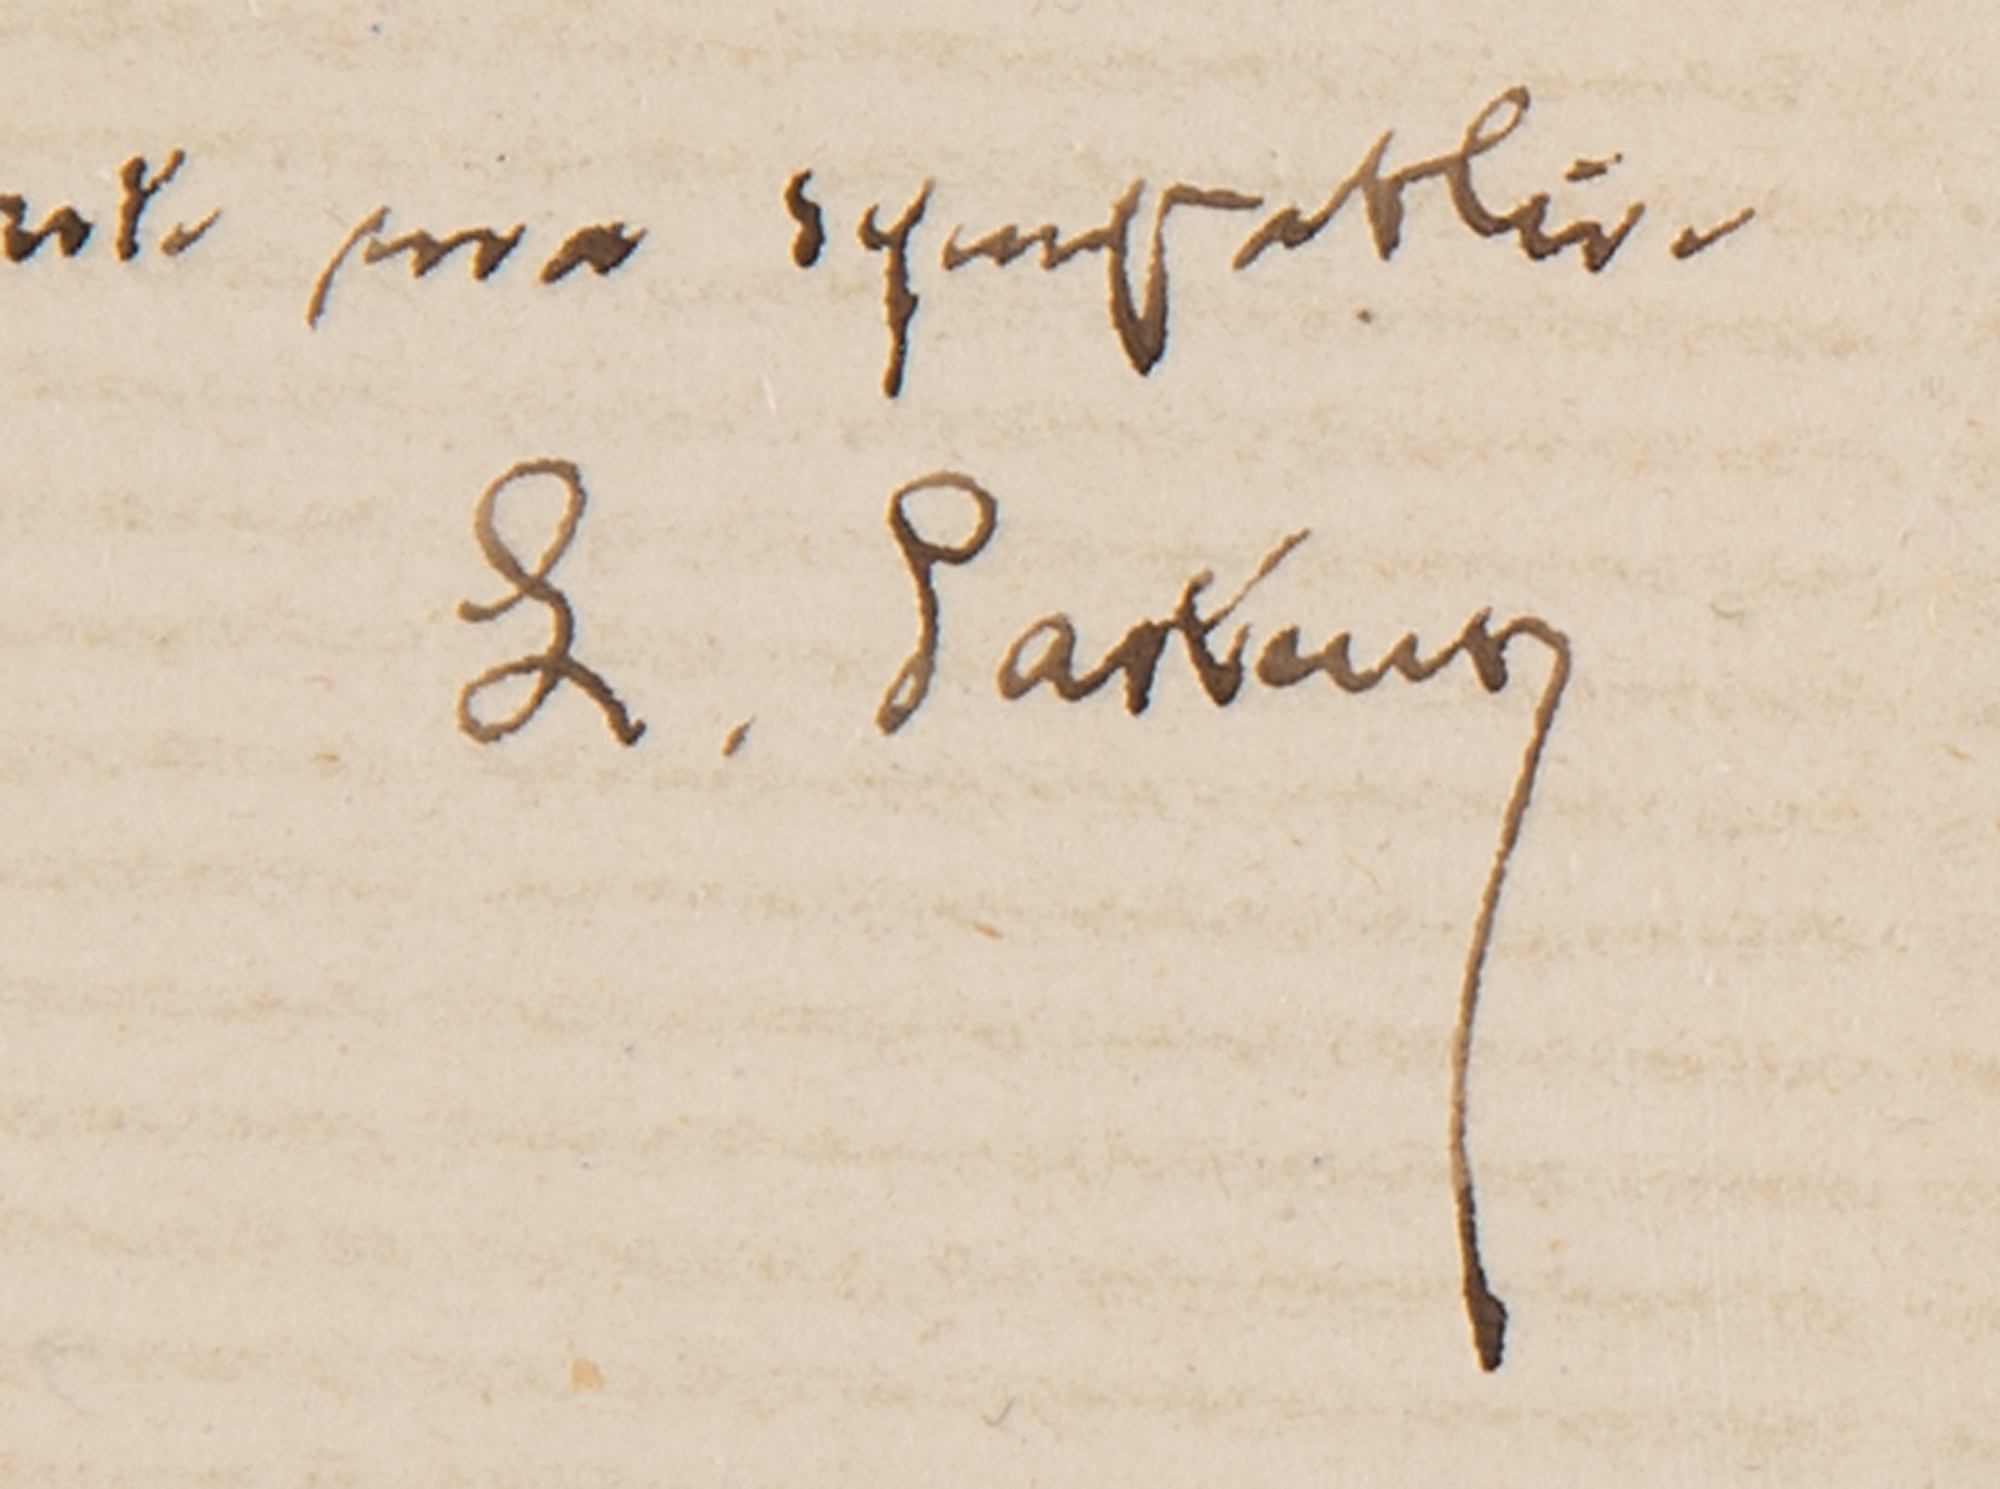 ma sympathie
L. Pasteur